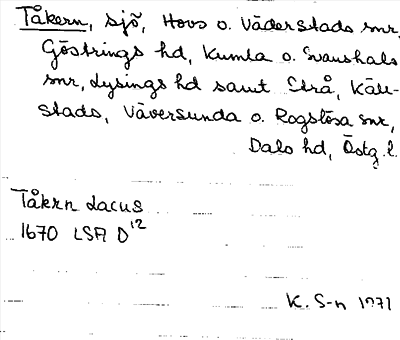 Tåkern, sjö, Hovs o. Väderstads snr,
Göstrings hd, Kumla o. Svanshals
snr, Lysings hd samt Strå, Käll-
stads, Väversunda o. Rogslösa snr,
Dals hd, Östg. l.
Tåkrn Lacus
1670 LSA D12
K. S-n 1971